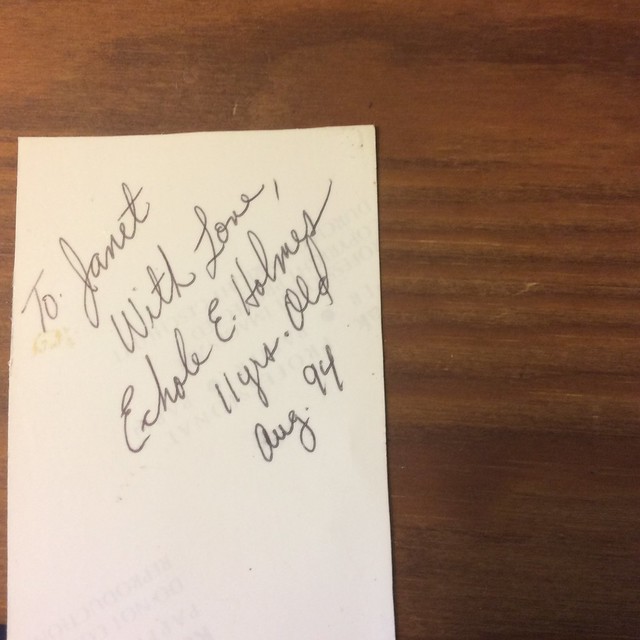 To. Janet
With Love,
Echole E. Holmes
11 yrs. Old
Aug. 94